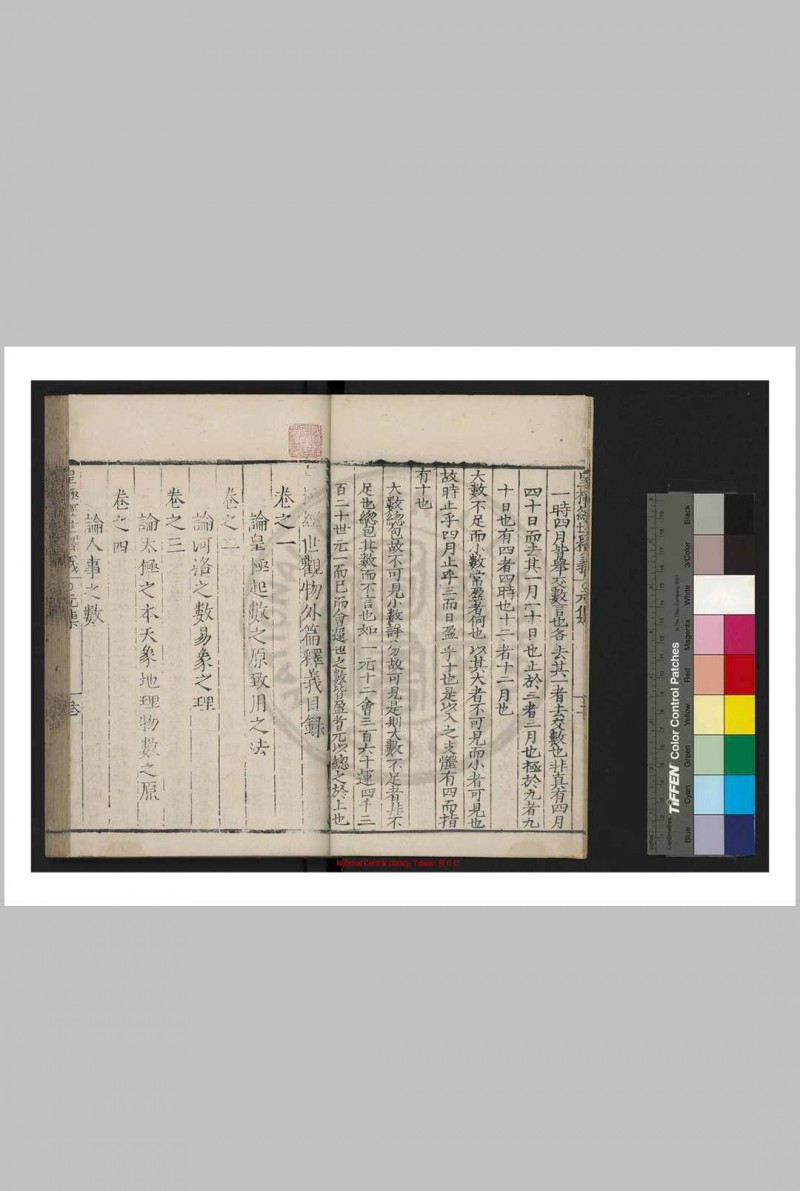 一時四月葢舉交數言也各去其一者去交數也非真有四月
四十日而去其一月一十日也止於三者三月也極於九者九
十日也有四者四時也十二者十二月也
大數不足而小數常盈者何也以其大者不可見而小者可見也
故時止乎四月止乎三而日盈乎十也是以人之支體有四而指
有十也
大數總包故不可見小數詳分故可見是則大數不足者非不
足也總包其數而不言也如一元十二會三百六十運四千三
百二十世元一而已而會運世之數皆盈者元以總之於上也
經世觀物外篇釋義目錄
卷之一
論皇極起數之原致用之法
卷之二
論河洛之數易象之理
卷之三
論太極之本天象地理物數之原
卷之四
論人事之數
National Central Library, Taiwan, R.O.C
TIFFEN Color Control Patches
Blue
Cyan
Green
Yellow
Red
Magenta
White
3/Color
Black